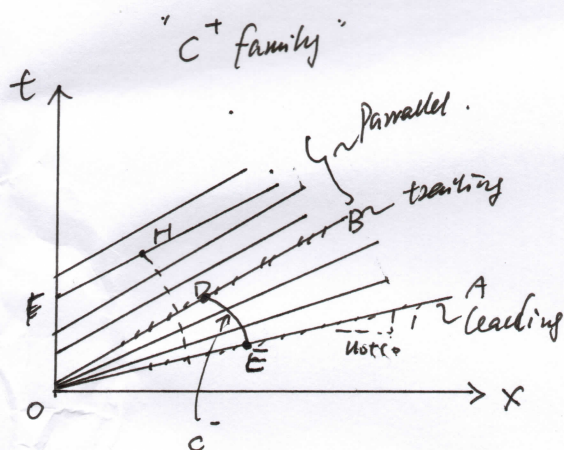 "C⁺ family"
t
Parallel.
trailing
B
H
D
F
A
leading
1
E
O
x
C⁻